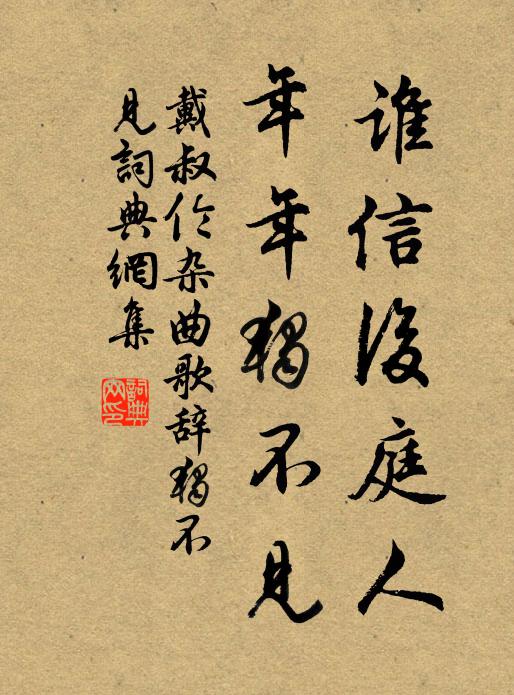 誰信後庭人
年年獨不見
戴叔伦杂曲歌辞獨不
見詞典網集
詞典網印